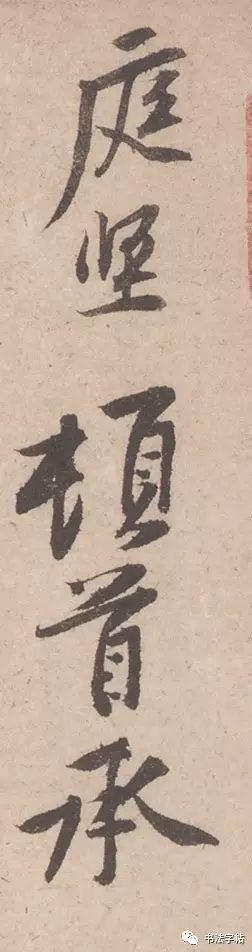 庭坚顿首承
书法字帖